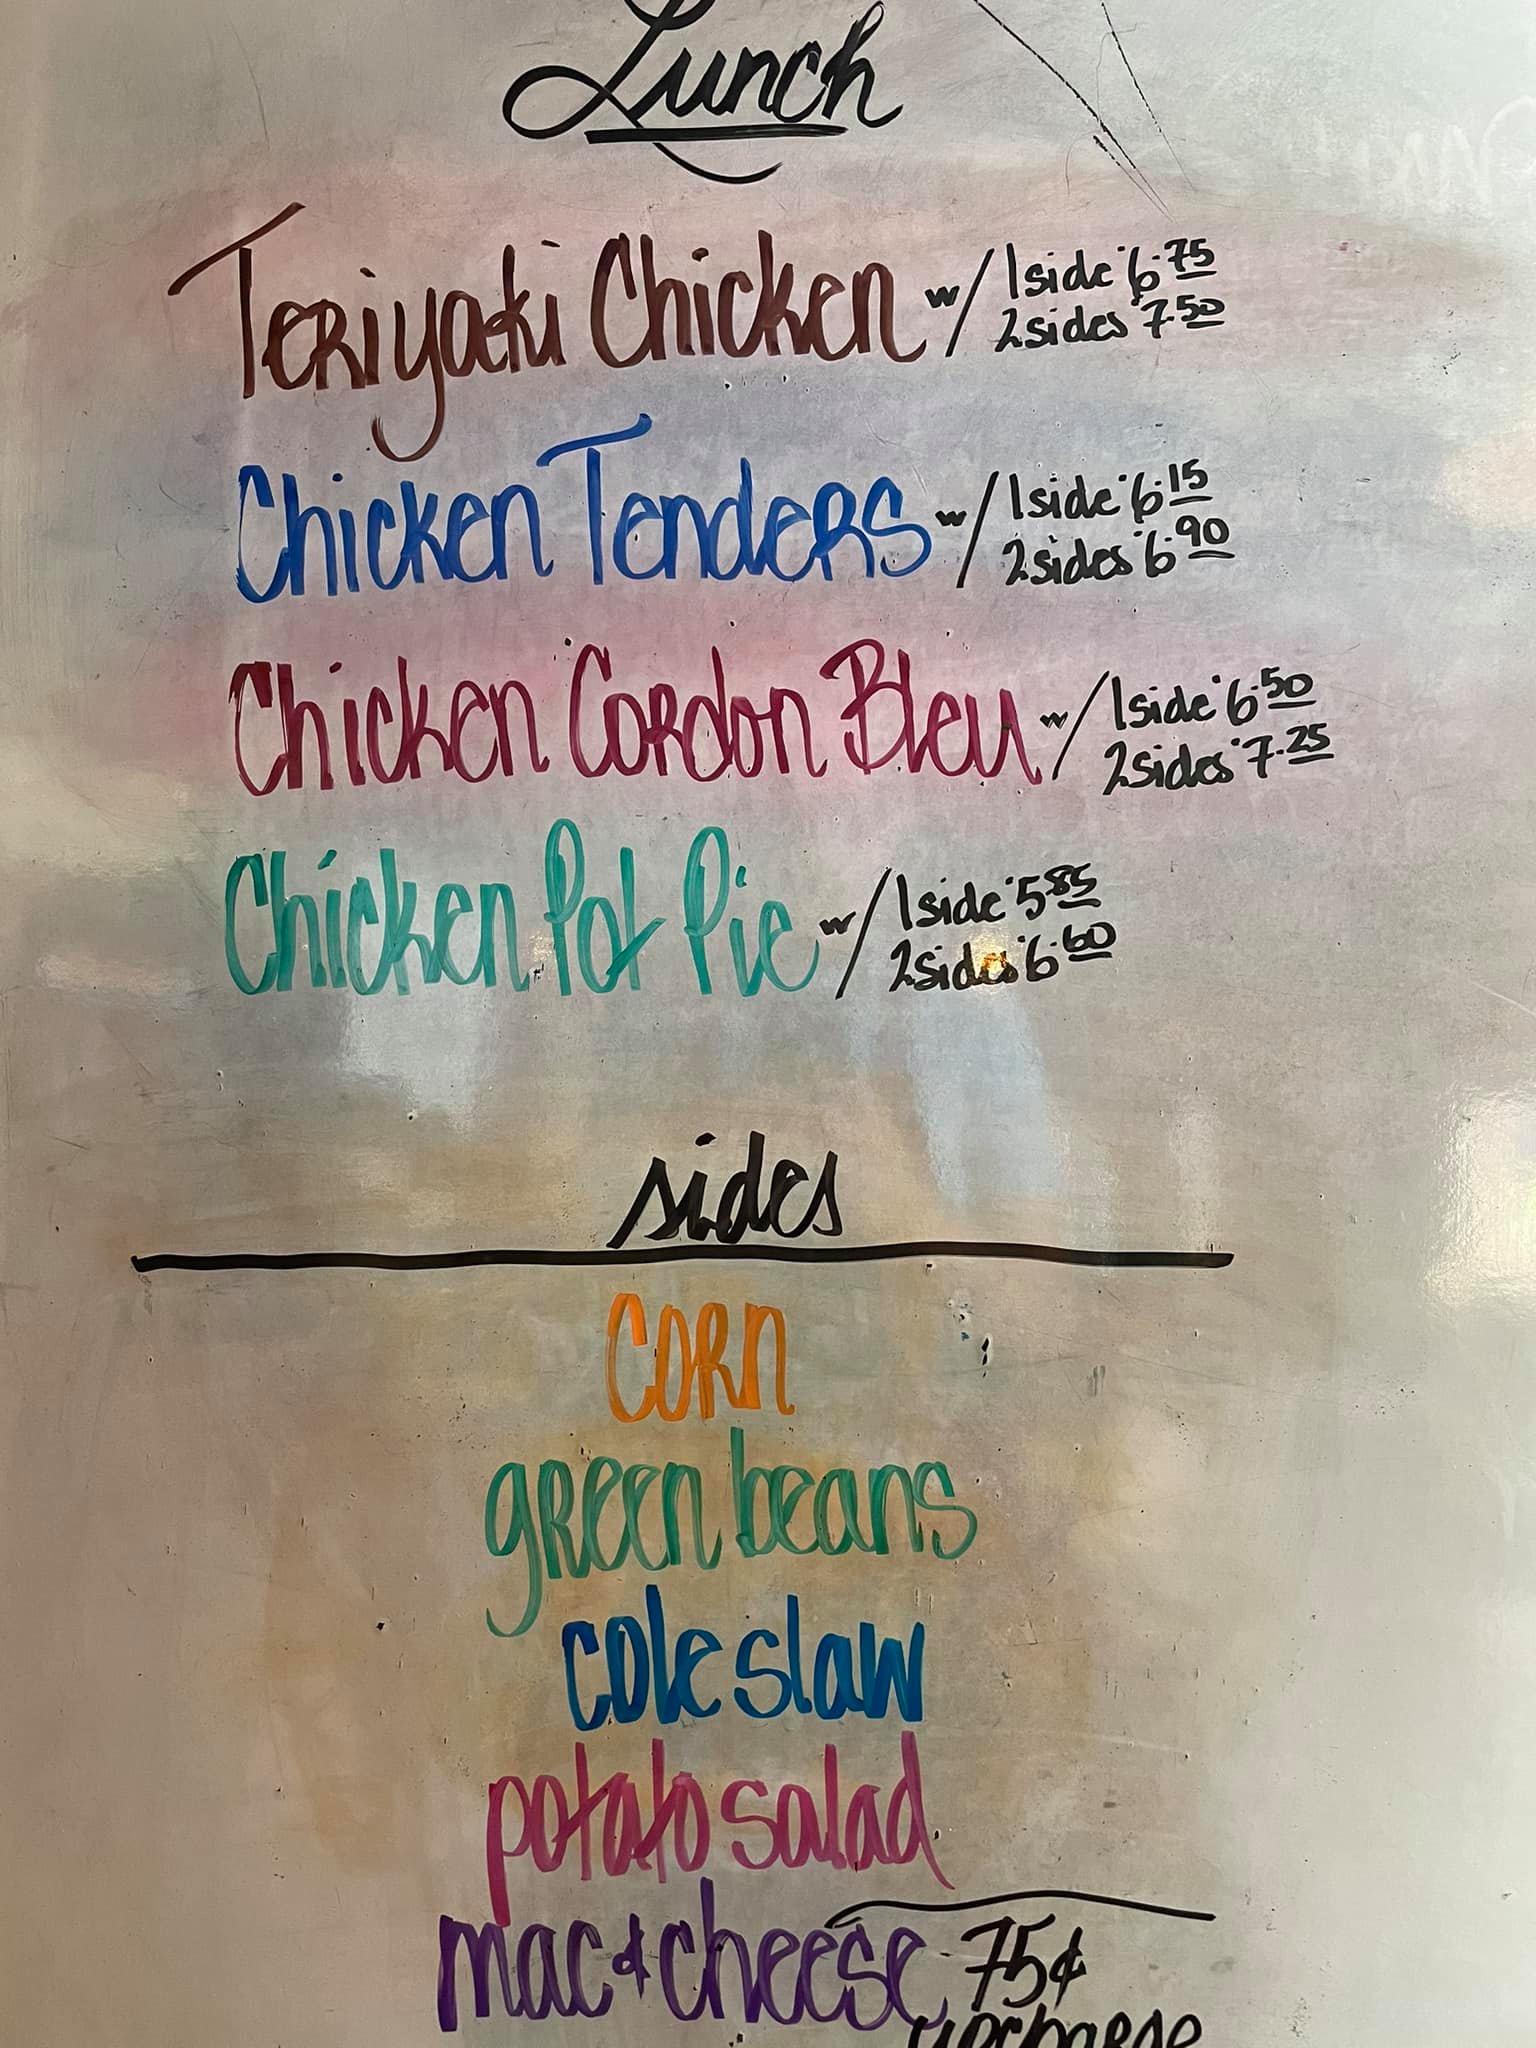 Lunch
Teriyaki Chicken w/ 1 side 6.75
2 sides 7.50
Chicken Tenders w/ 1 side 6.15
2 sides 6.90
Chicken Cordon Bleu w/ 1 side 6.50
2 sides 7.25
Chicken Pot Pie w/ 1 side 5.85
2 sides 6.60
sides
Corn
green beans
cole slaw
potato salad
mac & cheese 75¢
upcharge